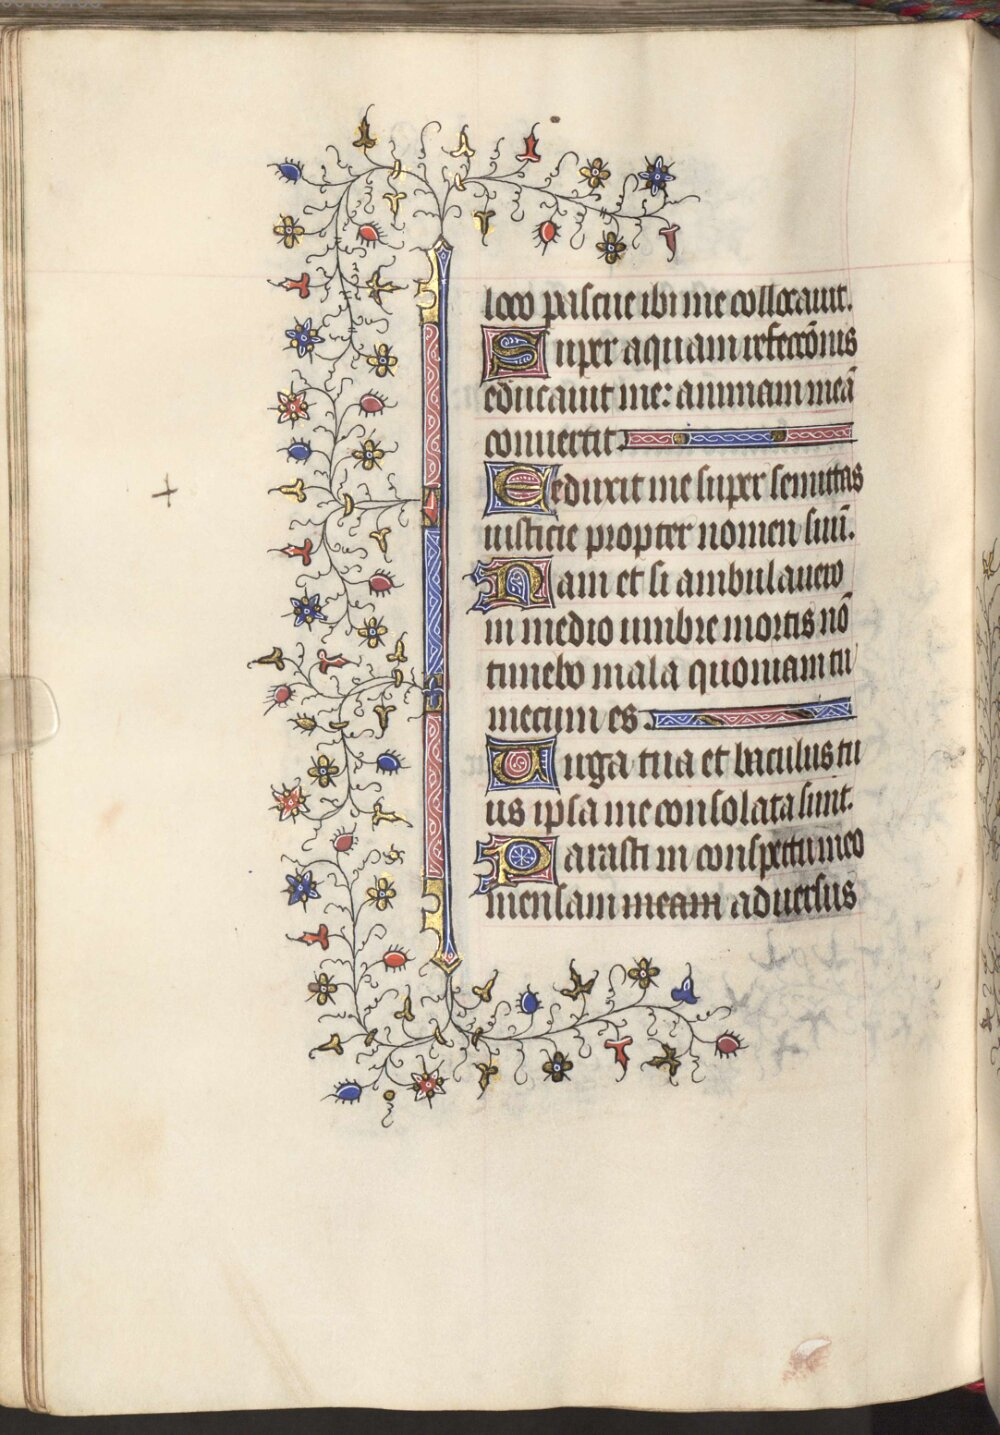 loco pascue ibi me collocauit.
Super aquam refecc̄onis
educauit me: animam meā
conuertit
Deduxit me super semittas
iusticie propter nomen suū.
Nam et si ambulauero
in medio umbre mortis nō
timebo mala quoniam tu
mecum es.
Uirga tua et baculus tu
us ipsa me consolata sunt.
Parasti in conspectu meo
mensam meam aduersus